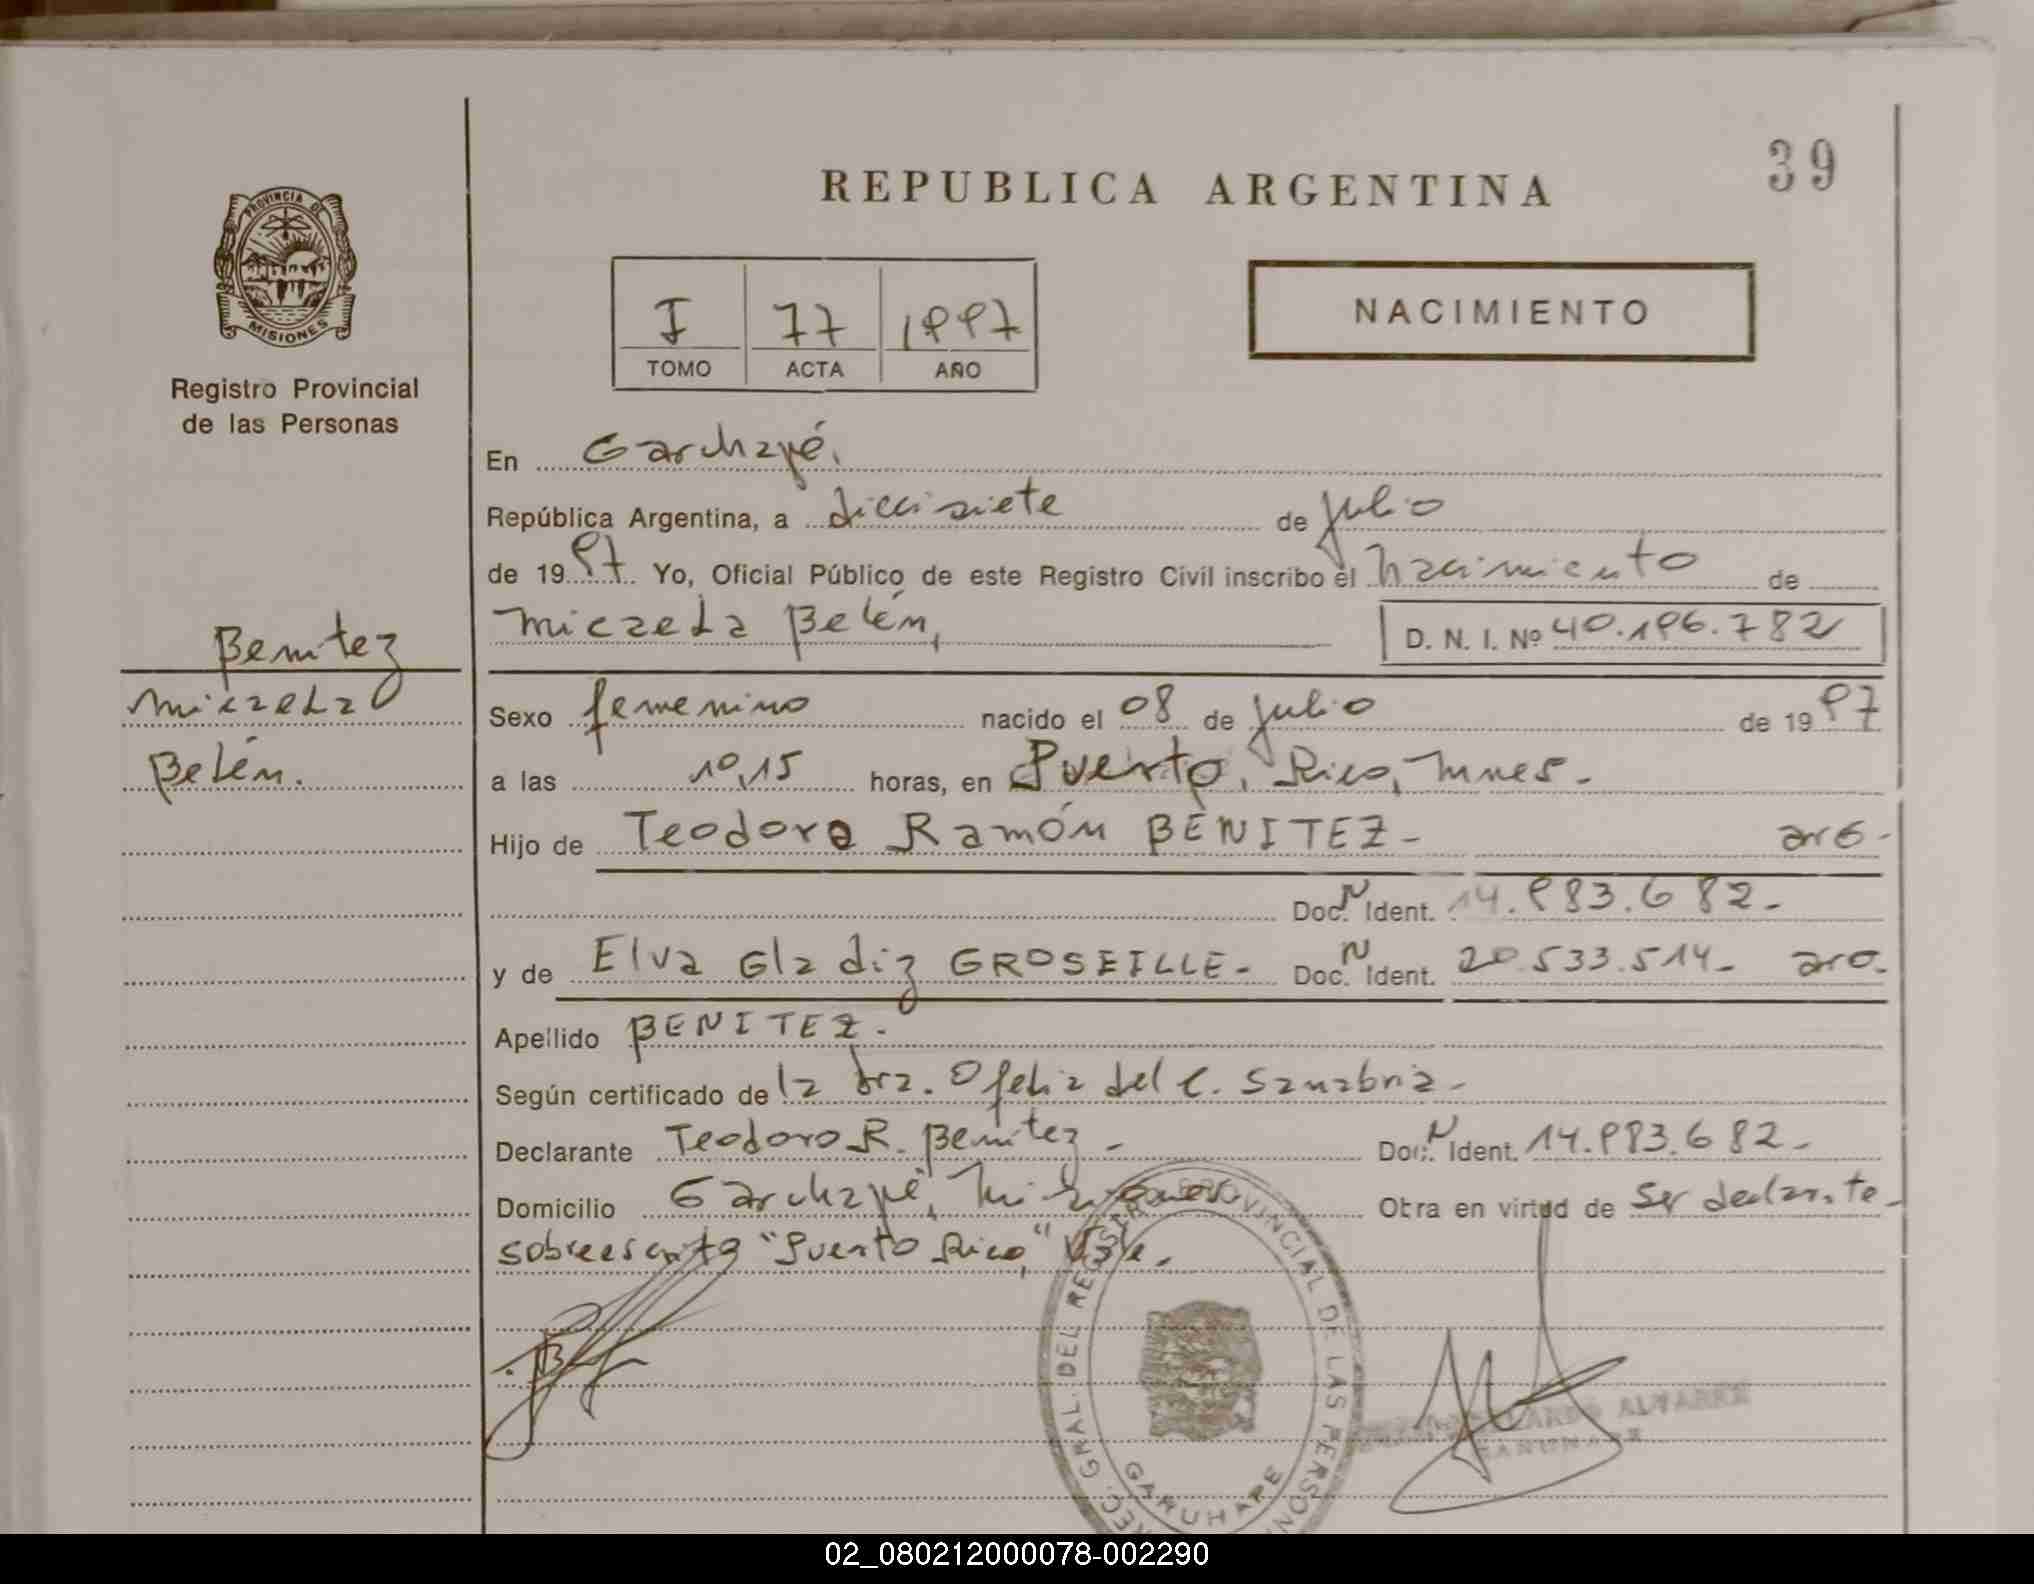 39
REPUBLICA ARGENTINA
PROVINCIA DE
MISIONES
I 77 1997
TOMO ACTA AÑO
NACIMIENTO
Registro Provincial
de las Personas
En Garuhapé.
República Argentina, a diecisiete de julio
de 1997. Yo, Oficial Público de este Registro Civil inscribo el nacimiento de
Micaela Belén,
D. N. I. Nº 40.196.782
Benitez
Micaela
Belén.
Sexo femenino nacido el 08 de julio de 1997
a las 10,15 horas, en Puerto Rico, Mnes.
Hijo de Teodoro Ramón BENITEZ- arg-
Doc. N Ident. 14.983.682-
y de Elva Gladiz GROSEILLE- Doc. N Ident. 20.533.514- arg.
Apellido BENITEZ.
Según certificado de la Dra. Ofelia del C. Sanabria-
Declarante Teodoro R. Benitez- Doc. N Ident. 14.983.682-
Domicilio Garuhapé, Misiones Otra en virtud de ser declarante-
sobreescrito "Puerto Rico," Vale.
GRAL. DEL REGISTRO PROVINCIAL DE LAS PERSON
GARUHAPE
ALVAREZ
GARUHAPE
02_080212000078-002290